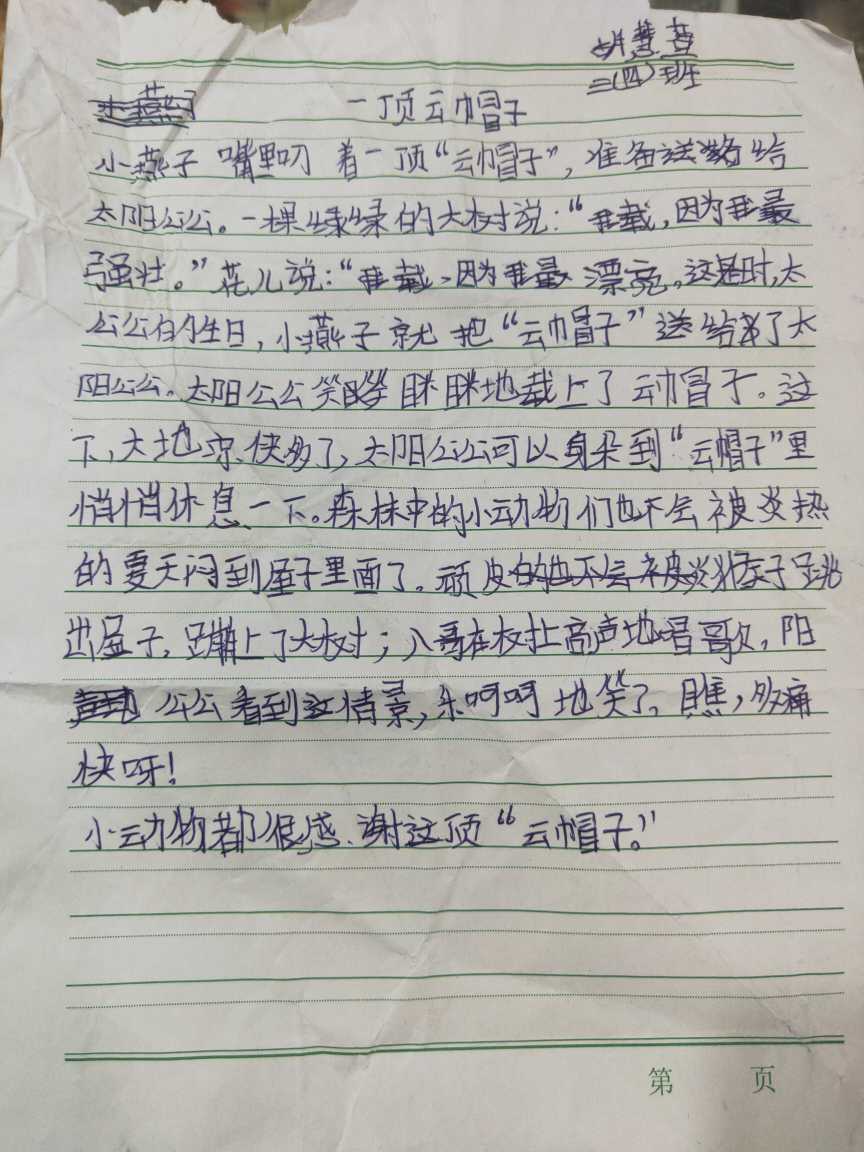 胡慧萱
三(四)班
一顶云帽子
小燕子嘴里叼着一顶“云帽子”,准备送给
太阳公公。一棵绿绿的大树说:“我载,因为我最
强壮。”花儿说:“我载、因为我最漂亮。这是时,太
公公的生日,小燕子就把“云帽子”送给了太
阳公公。太阳公公笑眯眯地载上了云冒子。这
下,大地凉快多了,太阳公公可以身朵到“云帽子”里
悄悄休息一下。森林中的小动物们也不会被炎热
的夏天闷到屋子里面了。顽皮的 子跳
出屋子,蹦上了大树;八哥在枝扯高声地唱歌,阳
公公看到这情景,乐呵呵地笑了。瞧,多痛
快呀!
小动物都很感谢这顶“云帽子。”
第 页